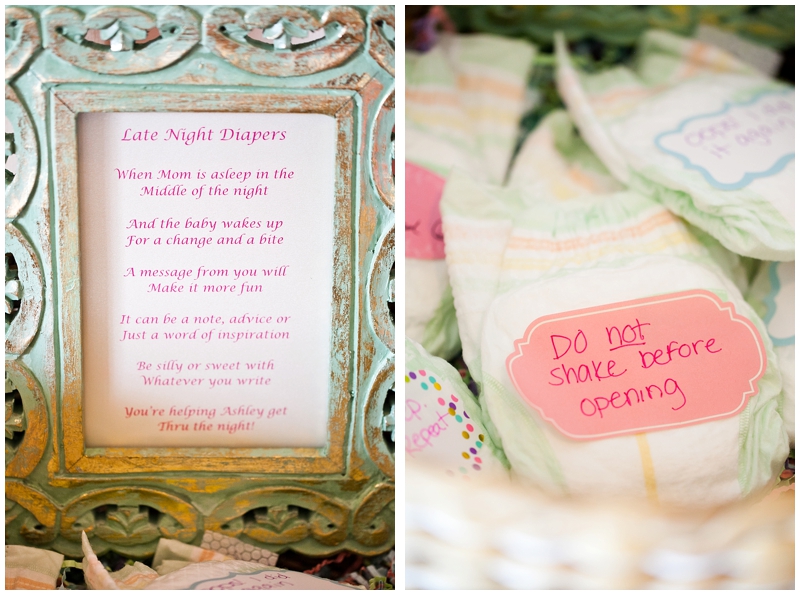 Late Night Diapers
When Mom is asleep in the
Middle of the night
And the baby wakes up
For a change and a bite
A message from you will
Make it more fun
It can be a note, advice or
Just a word of inspiration
Be silly or sweet with
Whatever you write
You're helping Ashley get
Thru the night!
oops! I did
again
oops! I did
it again
Do not
shake before
opening
Repeat